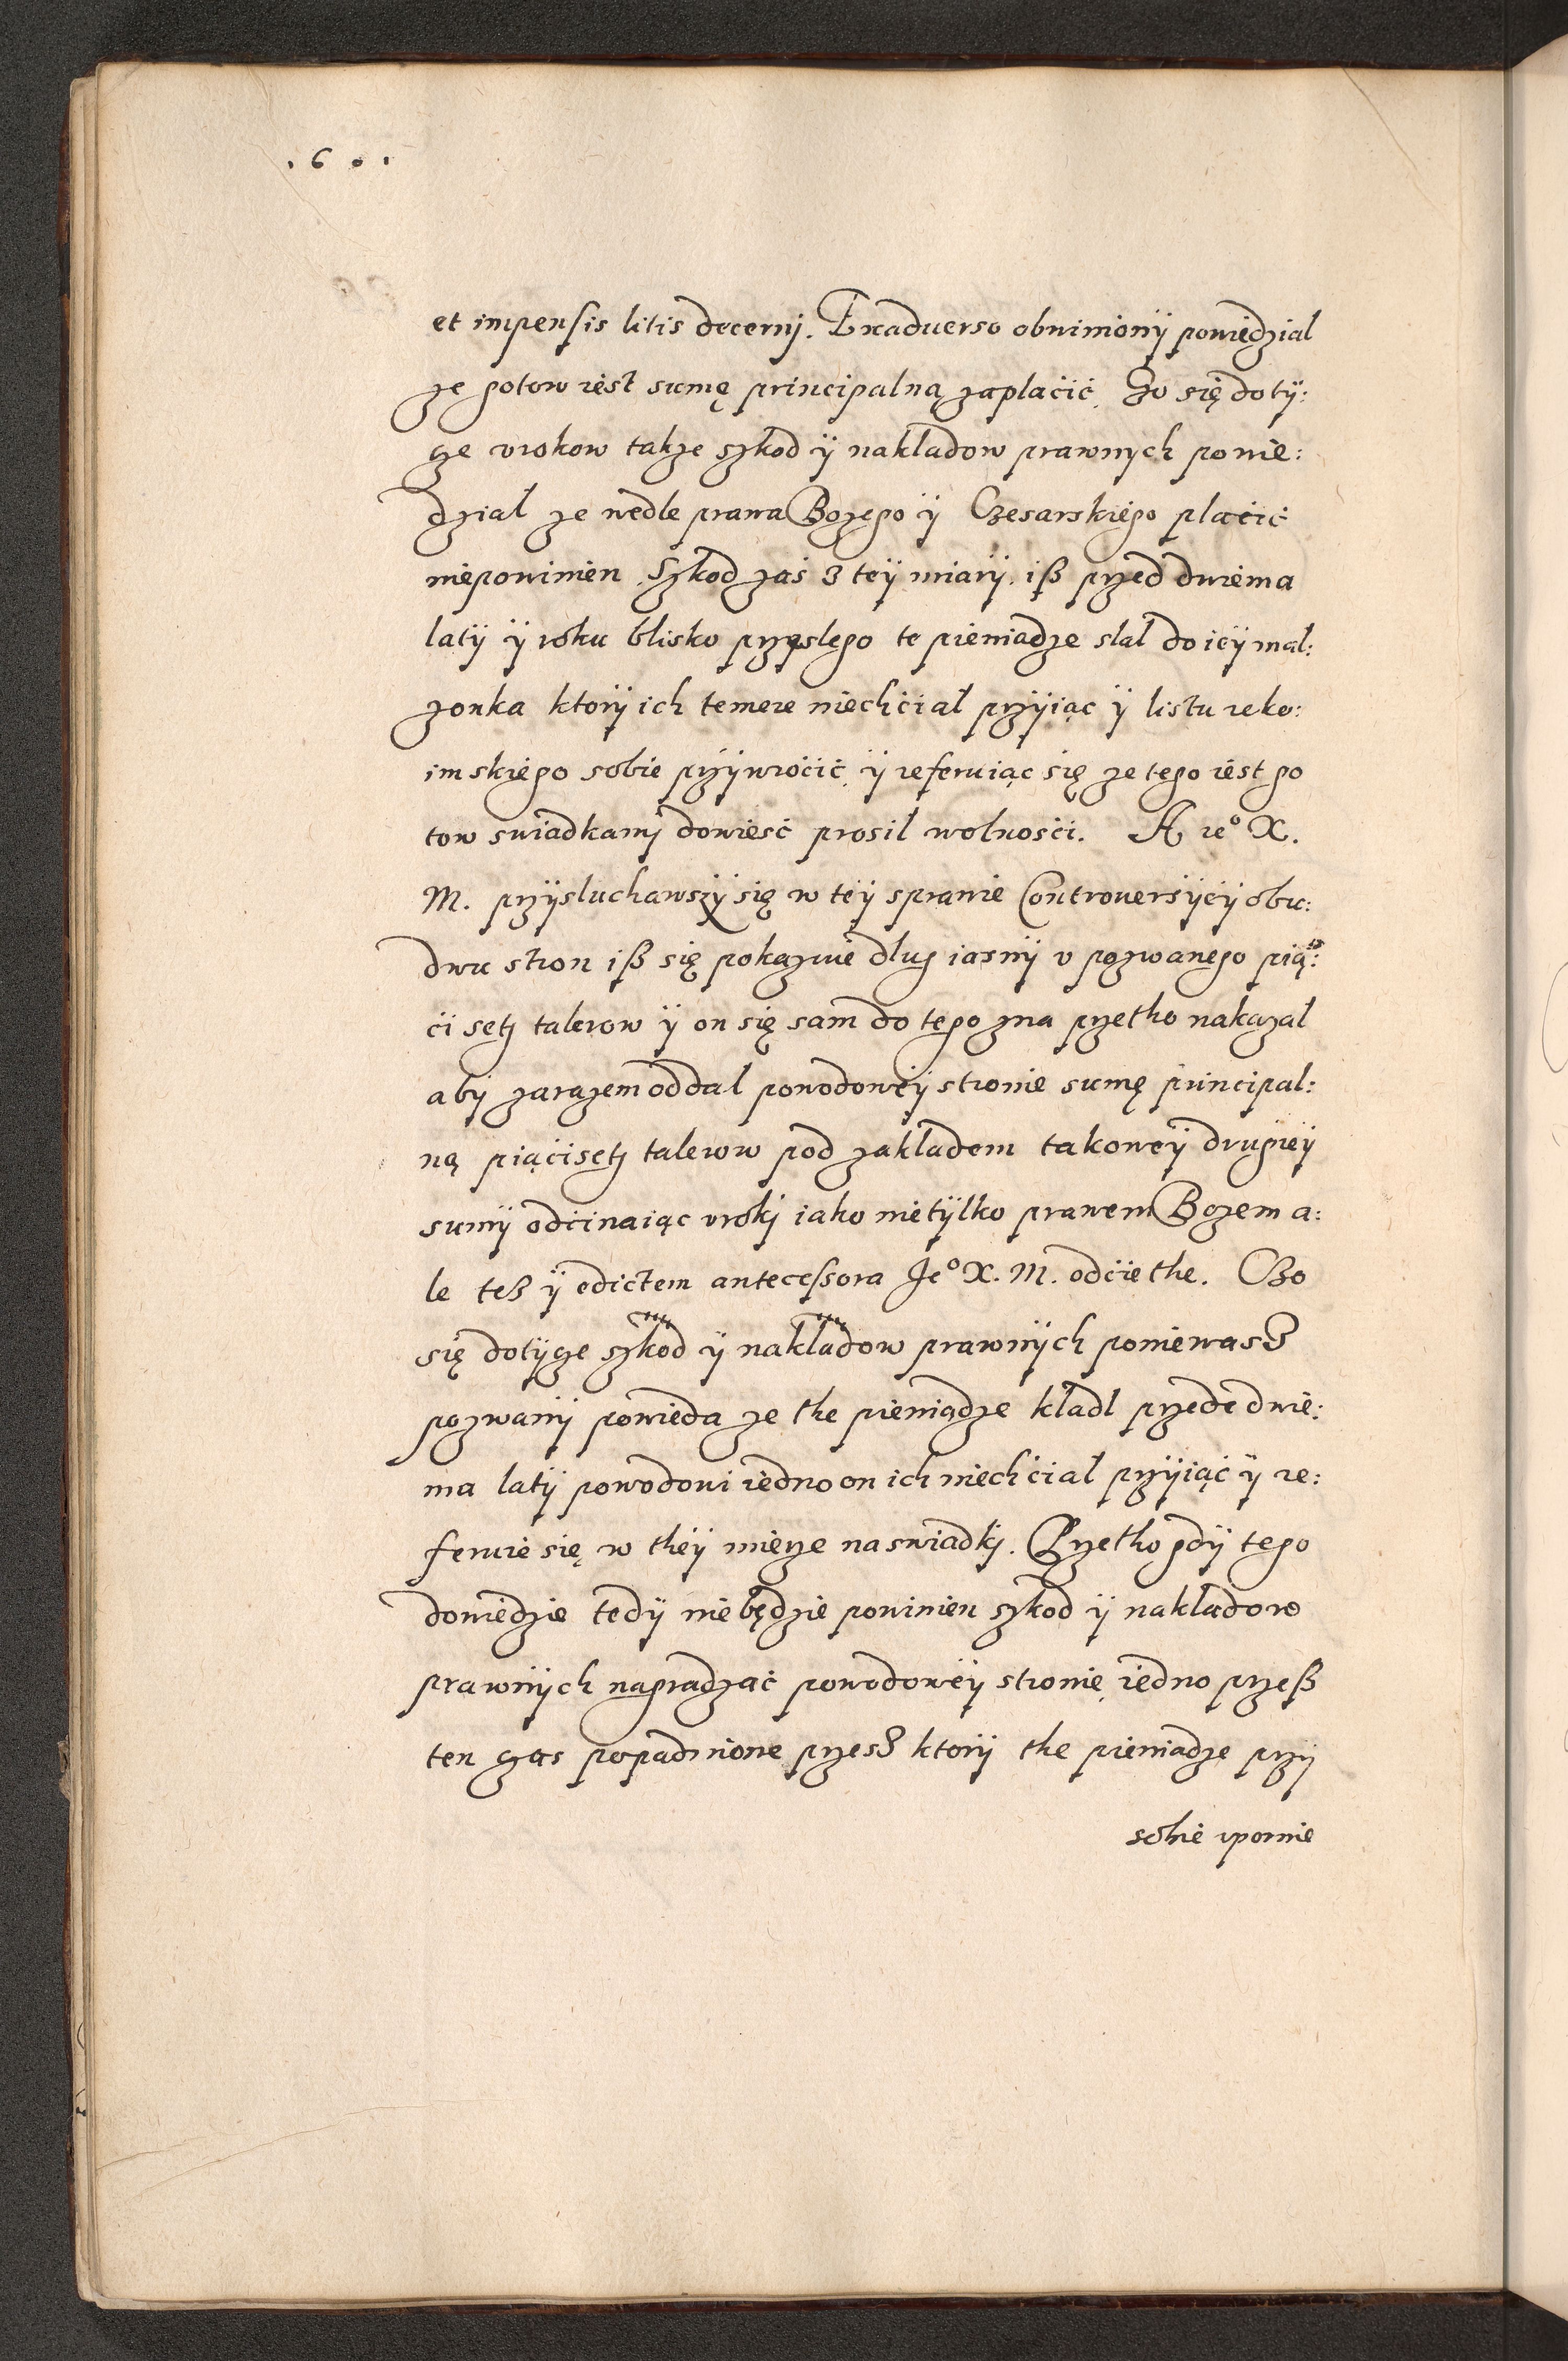 . 6 0 .
et impensis litis decernj. Exaduerso obwinionÿ powiedzial
ze gotow iest sumę principalną zaplaćić. Czo się dotÿ:
cze vrokow takze szkod ÿ nakladow prawnych powie:
dzial ze wedle prawa Bozego ÿ Czesarskiego plaćić
niepowinien. Szkod zaś z teÿ miarÿ. iß przed dwiema
latÿ ÿ roku blisko przeslego te pieniadze slal do ieÿ mal:
zonka ktorÿ ich temere niechćial przÿiąc ÿ listu reko:
imskiego sobie przÿwroćić, ÿ referuiąc się ze tego iest go
tow swiadkamj dowieść prosil wolnośći. A ie° X.
M. przÿsluchawszÿ się w teÿ sprawie Controuersÿeÿ obu:
dwu stron iß się pokazuie dlug iasnÿ v pozwanego pią:
ći setj talerow ÿ on się sam do tego zna przetho nakazal
abÿ zarazem oddal powodoweÿ stronie sumę principal:
ną piąćisetj talerow pod zakladem takoweÿ drugieÿ
sumÿ odćinaiąc vrokj iako nietÿlko prawem Bozem a:
le teß ÿ edictem antecessora Je° X. M. odćiethe. Czo
się dotÿcze szkod ÿ nakladow prawnÿch poniewasz
pozwanÿ powieda ze the pieniądze kladl przede dwie:
ma latÿ powodowi iedno on ich niechćial przÿiąć ÿ re:
feruie się w theÿ mierze na swiadkj. Przetho gdÿ tego
dowiedzie tedÿ niebędzie powinien szkod ÿ nakladow
prawnÿch nagradzać powodoweÿ stronie, iedno przeß
ten czas popadnione przesz ktorÿ the pieniadze przÿ
sobie vpornie